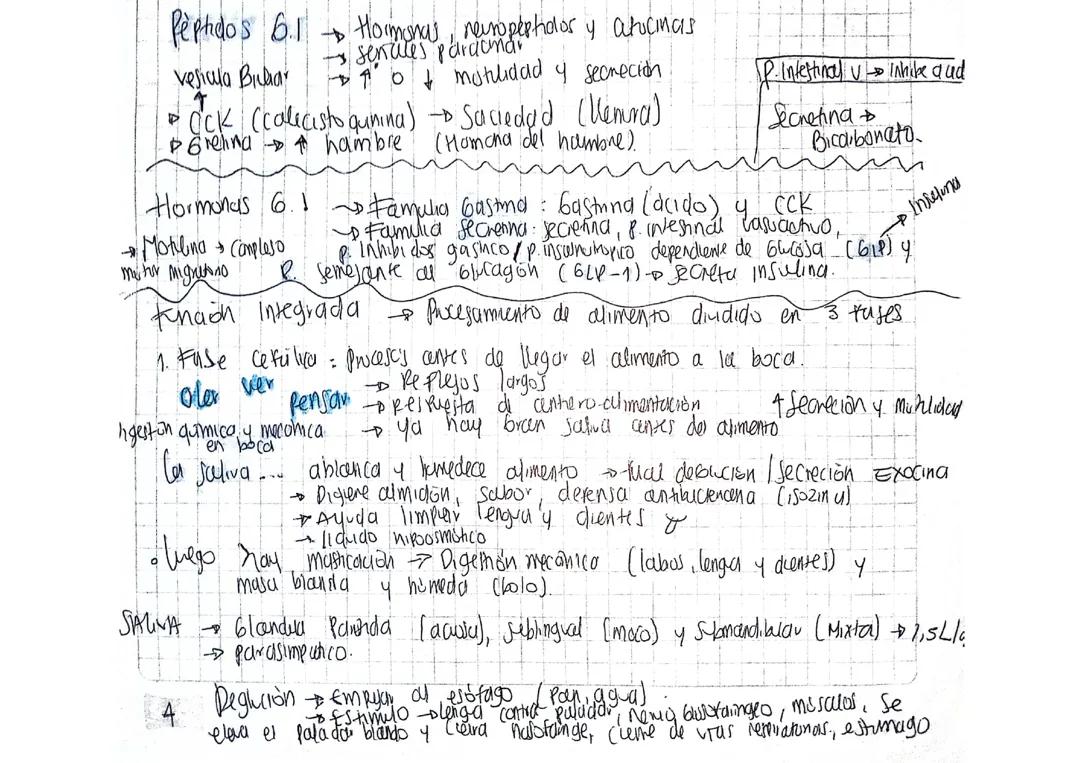 Péptidos 6.1 → Hormonas, neuropéptidos y citocinas
→ señales paracrinar
vesicula Biliar → ↑ o ↓ motilidad y secreción
P. Intestinal v → Inhibe acid
↑
▷ CCK (colecistoquinina) → Saciedad (llenura)
Secretina →
Bicarbonato.
▷ Grelina → ↑ hambre (Homona del hambre)
Hormonas 6.1 → Familia Gastrina : Gastrina (ácido) y CCK
→ Insulina
→ Familia secretina: secretina, p. intestinal vasoactivo,
→ Motilina → Complejo
p. Inhibidos gástrico / p. insulinotrópico dependiente de Glucosa (GLP) y
motor migratorio
P. semejante al Glucagón (GLP-1) → secreta insulina.
Función Integrada → Procesamiento de alimento dividido en 3 fases
1. Fase cefálica : procesos antes de llegar el alimento a la boca.
oler ver pensar → Reflejos largos
→ respuesta de centrero-alimentación ↑ Secreción y Motilidad
→ ya hay bren saliva antes del alimento
Digestión química y mecánica
en boca
La saliva ... ablanca y humedece alimento → fual deglución / Secreción Exocina
→ Digiere almidón, sabor, defensa antibacteriana (isozima)
→ Ayuda limpiar lengua y dientes y
→ líquido hipoosmótico
• luego hay masticación → Digestión mecánica (labos, lengua y dientes) y
masa blanda y húmeda (bolo).
SALIVA → Glandula Parótida (acuosa), sublingual (moco) y Submandibular (Mixta) → 1,5L/
→ parasimpatico.
Deglución → Empujan al esófago (Pan, agua).
4
→ Estímulo → lengua contra paladar, nervio glosofaríngeo, músculos, se
eleva el paladar blando y cierra nasofaringe, cierre de vías respiratorias, estomago